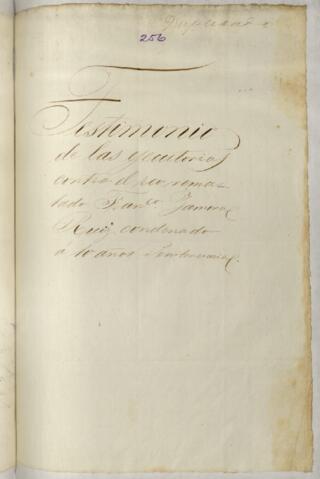 Duplicado
256
Testimonio
de las ejecutorias
contra el reo rema-
tado Franco Zamora
Ruiz condenado
a 10 años Penitenciaria.